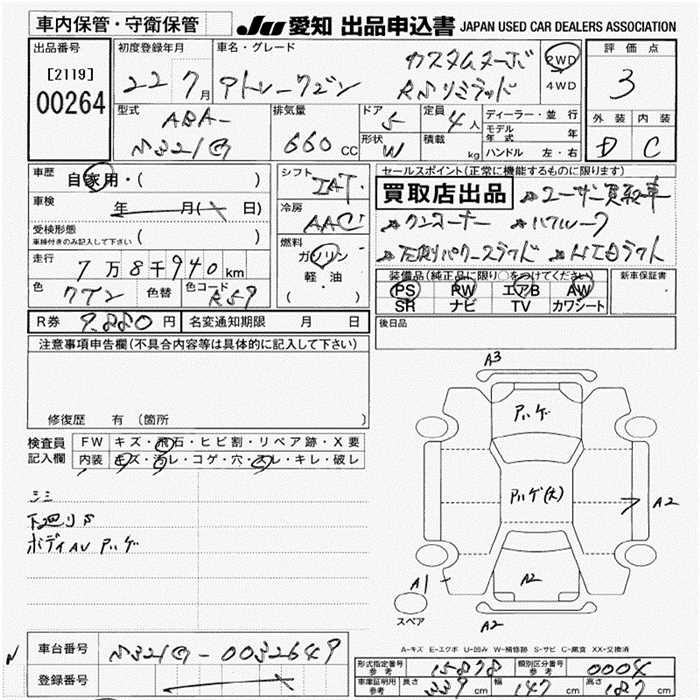 車内保管・守衛保管 JU 愛知 出品申込書 JAPAN USED CAR DEALERS ASSOCIATION
出品番号 初度登録年月 車名・グレード 評価点
[2119] 22 7月 アトレーワゴン カスタムターボ 2WD 3
00264 RSリミテッド 4WD
型式 排気量 ドア 定員 ディーラー・並行 外装 内装
ABA- 5 4人 モデル年式 年
S321G 660 CC 形状 W 積載 kg ハンドル 左・右 D C
車歴 自家用・( ) シフト IAT セールスポイント(正常に機能するものに限ります)
車検 年 月( 日) 冷房 AAC 買取店出品 ユーザー買取車
受検形態 ワンオーナー
車検付きのみ記入して下さい ( ) 燃料 ガソリン 左側パワースライド HIDライト
走行 7万8千940km 軽・油 装備品(純正品に限り○をつけてください) 新車保証書
色 ワイン 色替 色コード R59 ( ) PS PW エアB AW
SR ナビ TV カワシート
R券 9.880円 名変通知期限 月 日 後日品
注意事項申告欄(不具合内容等は具体的に記入して下さい)
修復歴 有 (箇所 )
検査員 FW キズ・飛石・ヒビ割・リペア跡・X要
記入欄 内装 キズ・汚レ・コゲ・穴・スレ・キレ・破レ
シミ
下廻りS
ボディAU アハゲ
A3
アハゲ
アハゲ(大)
A2
A1
A2
スペア
A2
A-キズ E-エクボ U-凹み W-補修跡 S-サビ C-腐食 XX-交換済
車台番号 S321G-0032649 形式指定番号 参考 15878 類別区分番号 参考 0004
登録番号 車庫証明用 参考 長さ 339cm 幅 147cm 高さ 187cm